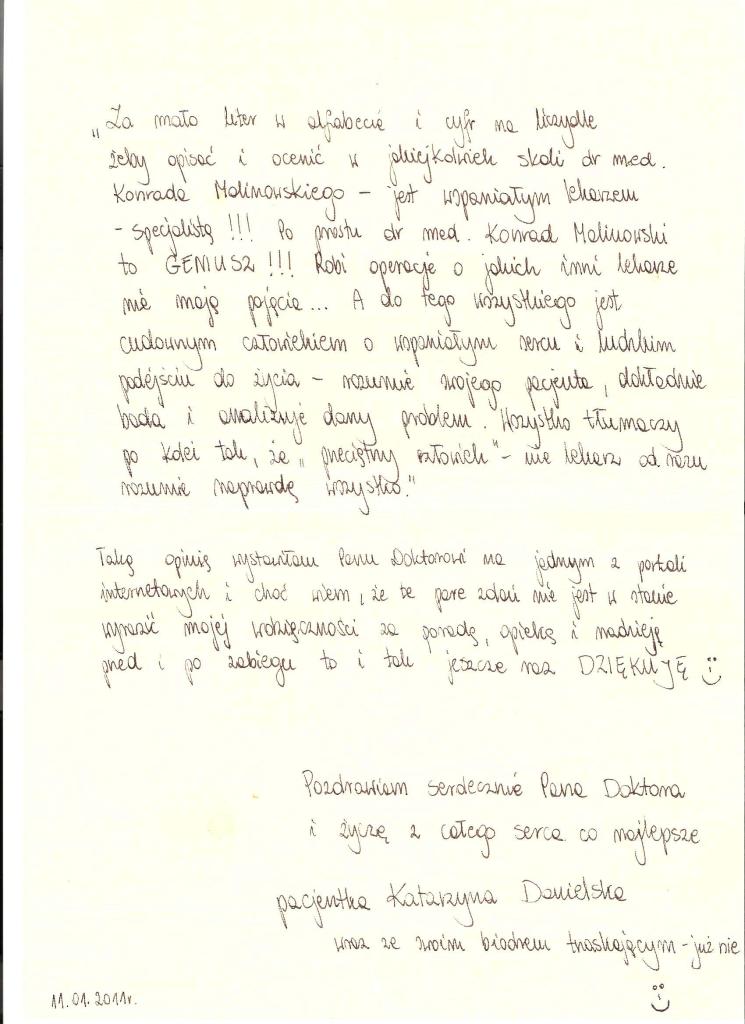 „Za mało liter w alfabecie i cyfr na liczydle
żeby opisać i ocenić w jakiejkolwiek skali dr med.
Konrada Malinowskiego - jest wspaniałym lekarzem
- specjalistą !!! Po prostu dr med. Konrad Malinowski
to GENIUSZ !!! Robi operacje o jakich inni lekarze
nie mają pojęcia... A do tego wszystkiego jest
cudownym człowiekiem o wspaniałym sercu i ludzkim
podejściu do życia - rozumie swojego pacjenta, dokładnie
bada i analizuje dany problem. Wszystko tłumaczy
po kolei tak, że „przeciętny człowiek" - nie lekarz od razu
rozumie naprawdę wszystko."
Taką opinię wystawiłam Panu Doktorowi na jednym z portali
internetowych i choć wiem, że te parę zdań nie jest w stanie
wyrazić mojej wdzięczności za poradę, opiekę i nadzieję
przed i po zabiegu to i tak jeszcze raz DZIĘKUJĘ
Pozdrawiam serdecznie Pana Doktora
i życzę z całego serca co najlepsze
pacjentka Katarzyna Danielska
wraz ze swoim biodrem trzaskającym - już nie
11.01.2011r.